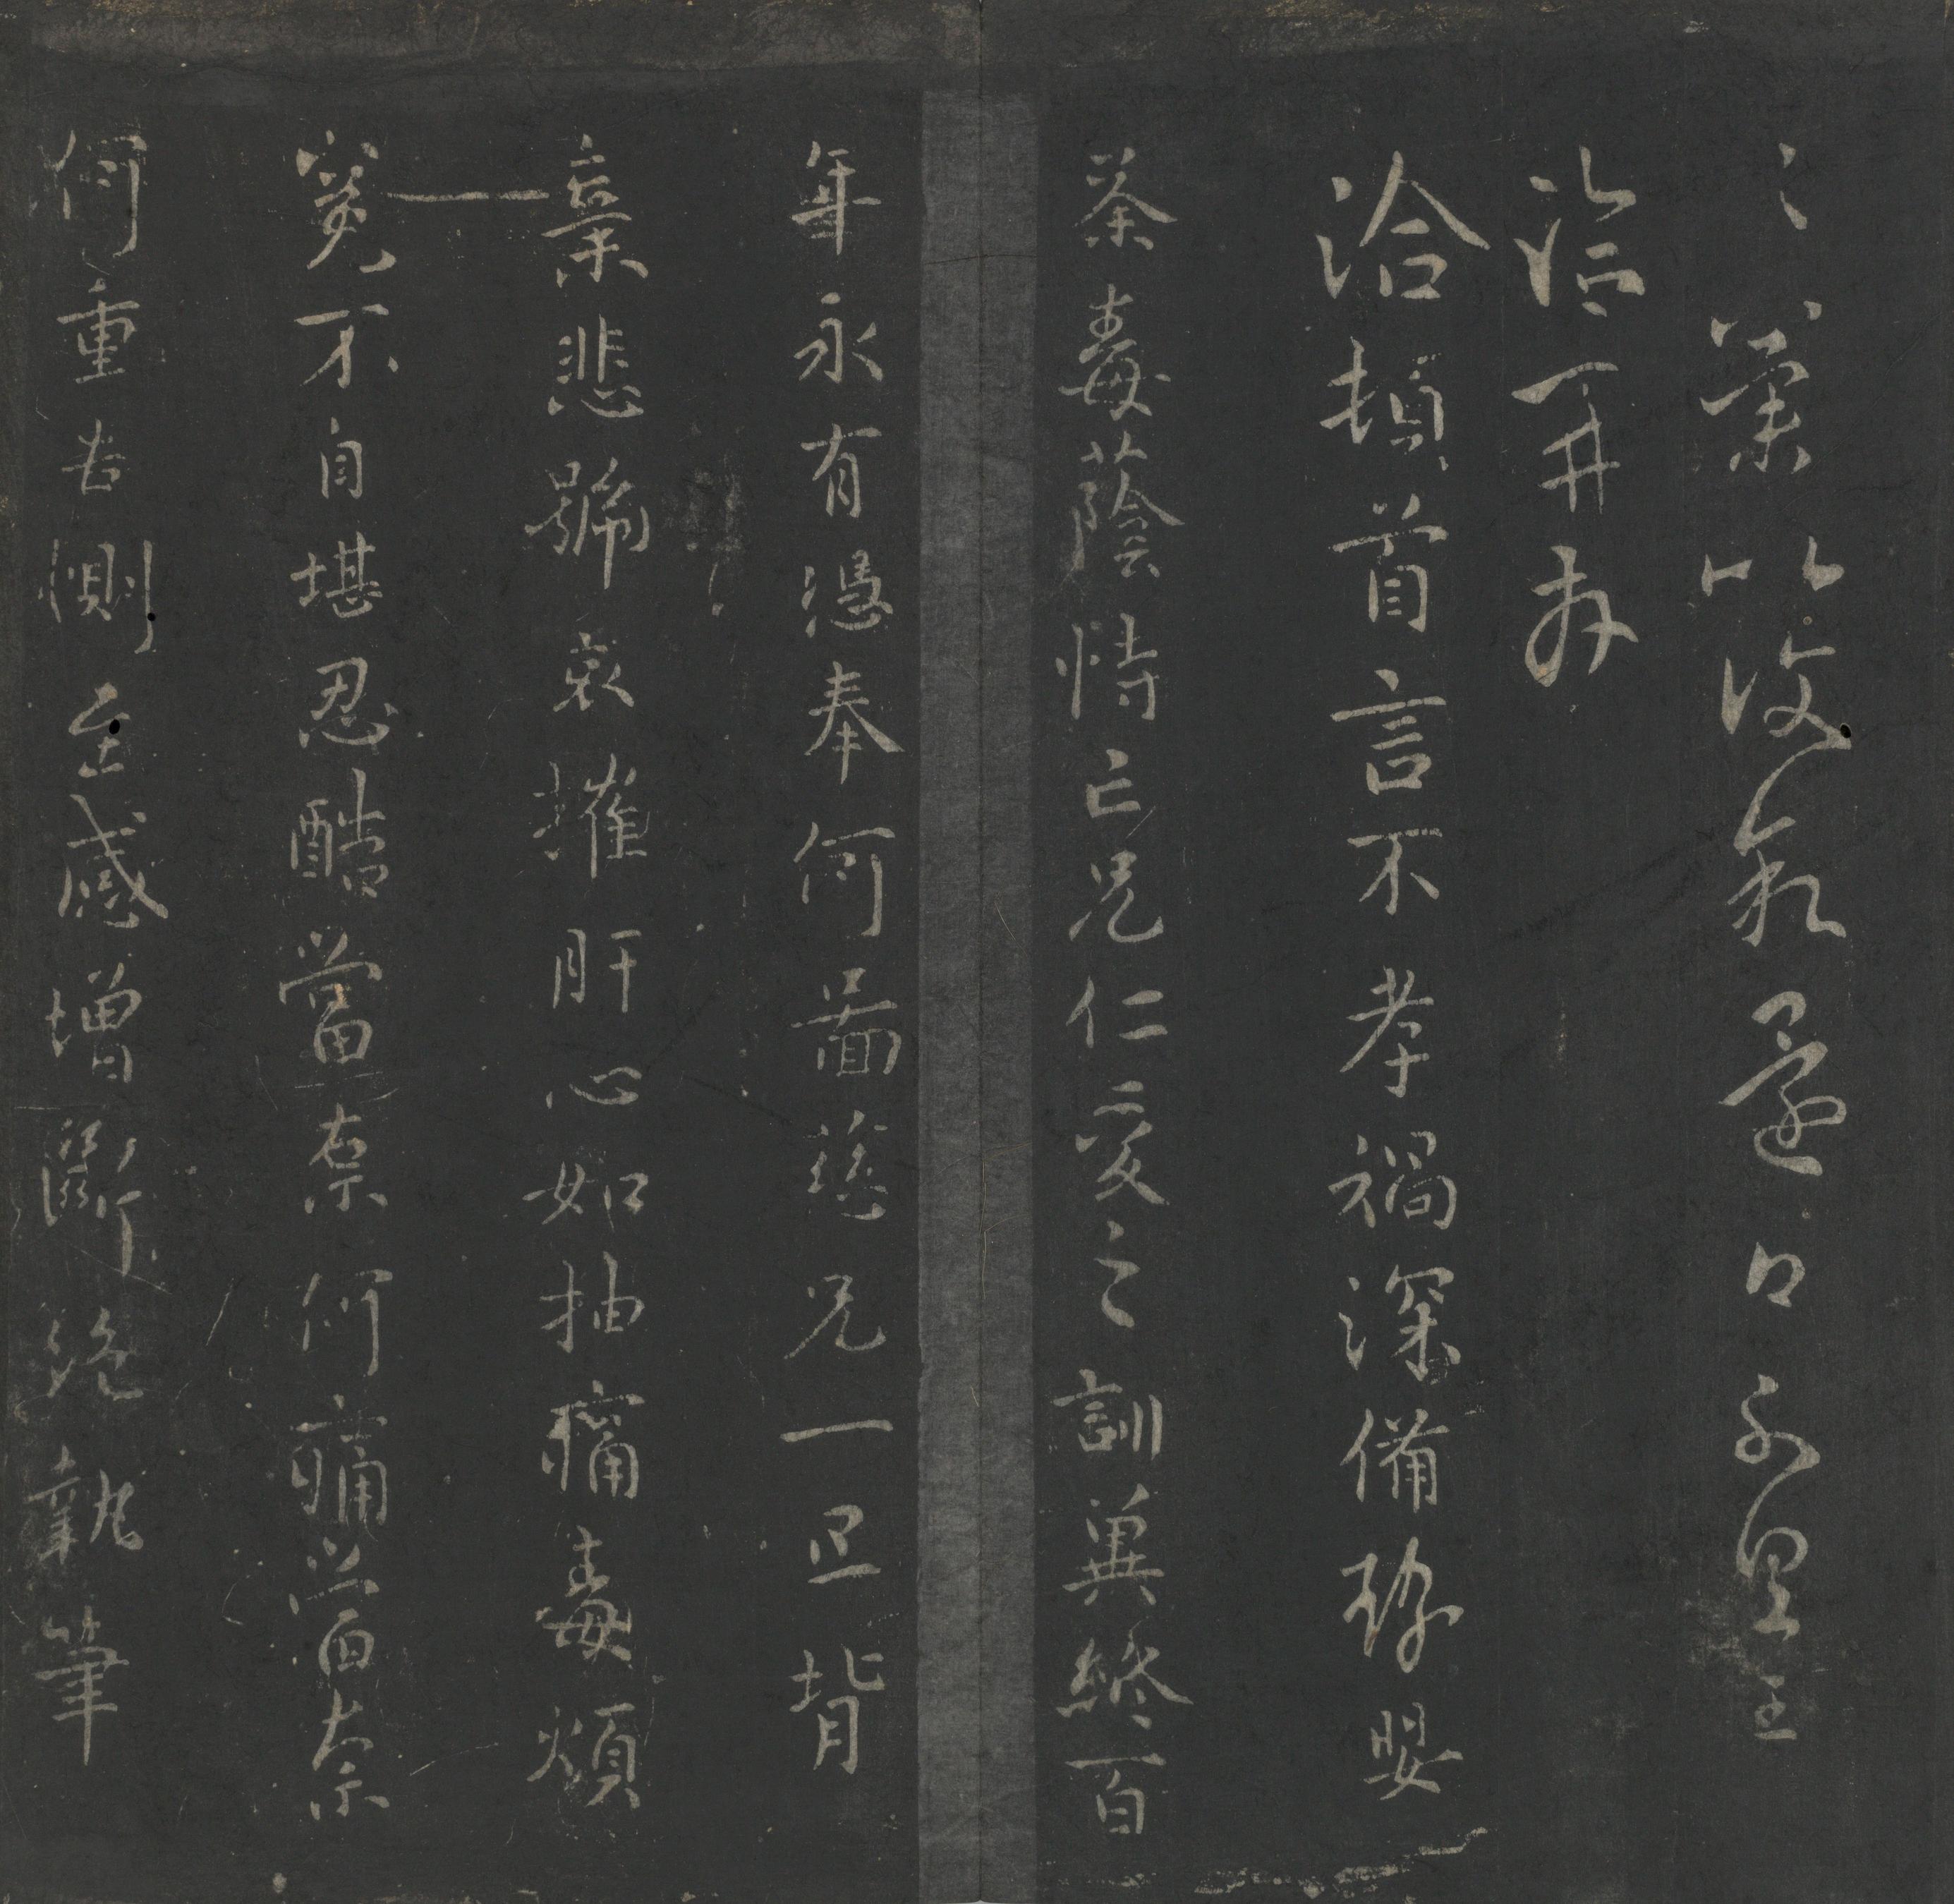 還口不具王
洽再拜
洽頓首言不孝禍深備豫嬰
荼毒蔭恃亡兄仁愛之訓冀終百
年永有憑奉何圖慈兄一旦背
棄悲號哀摧肝心如抽痛毒煩
冤不自堪忍酷當奈何痛當奈
何重告惻至感增斷絕執筆